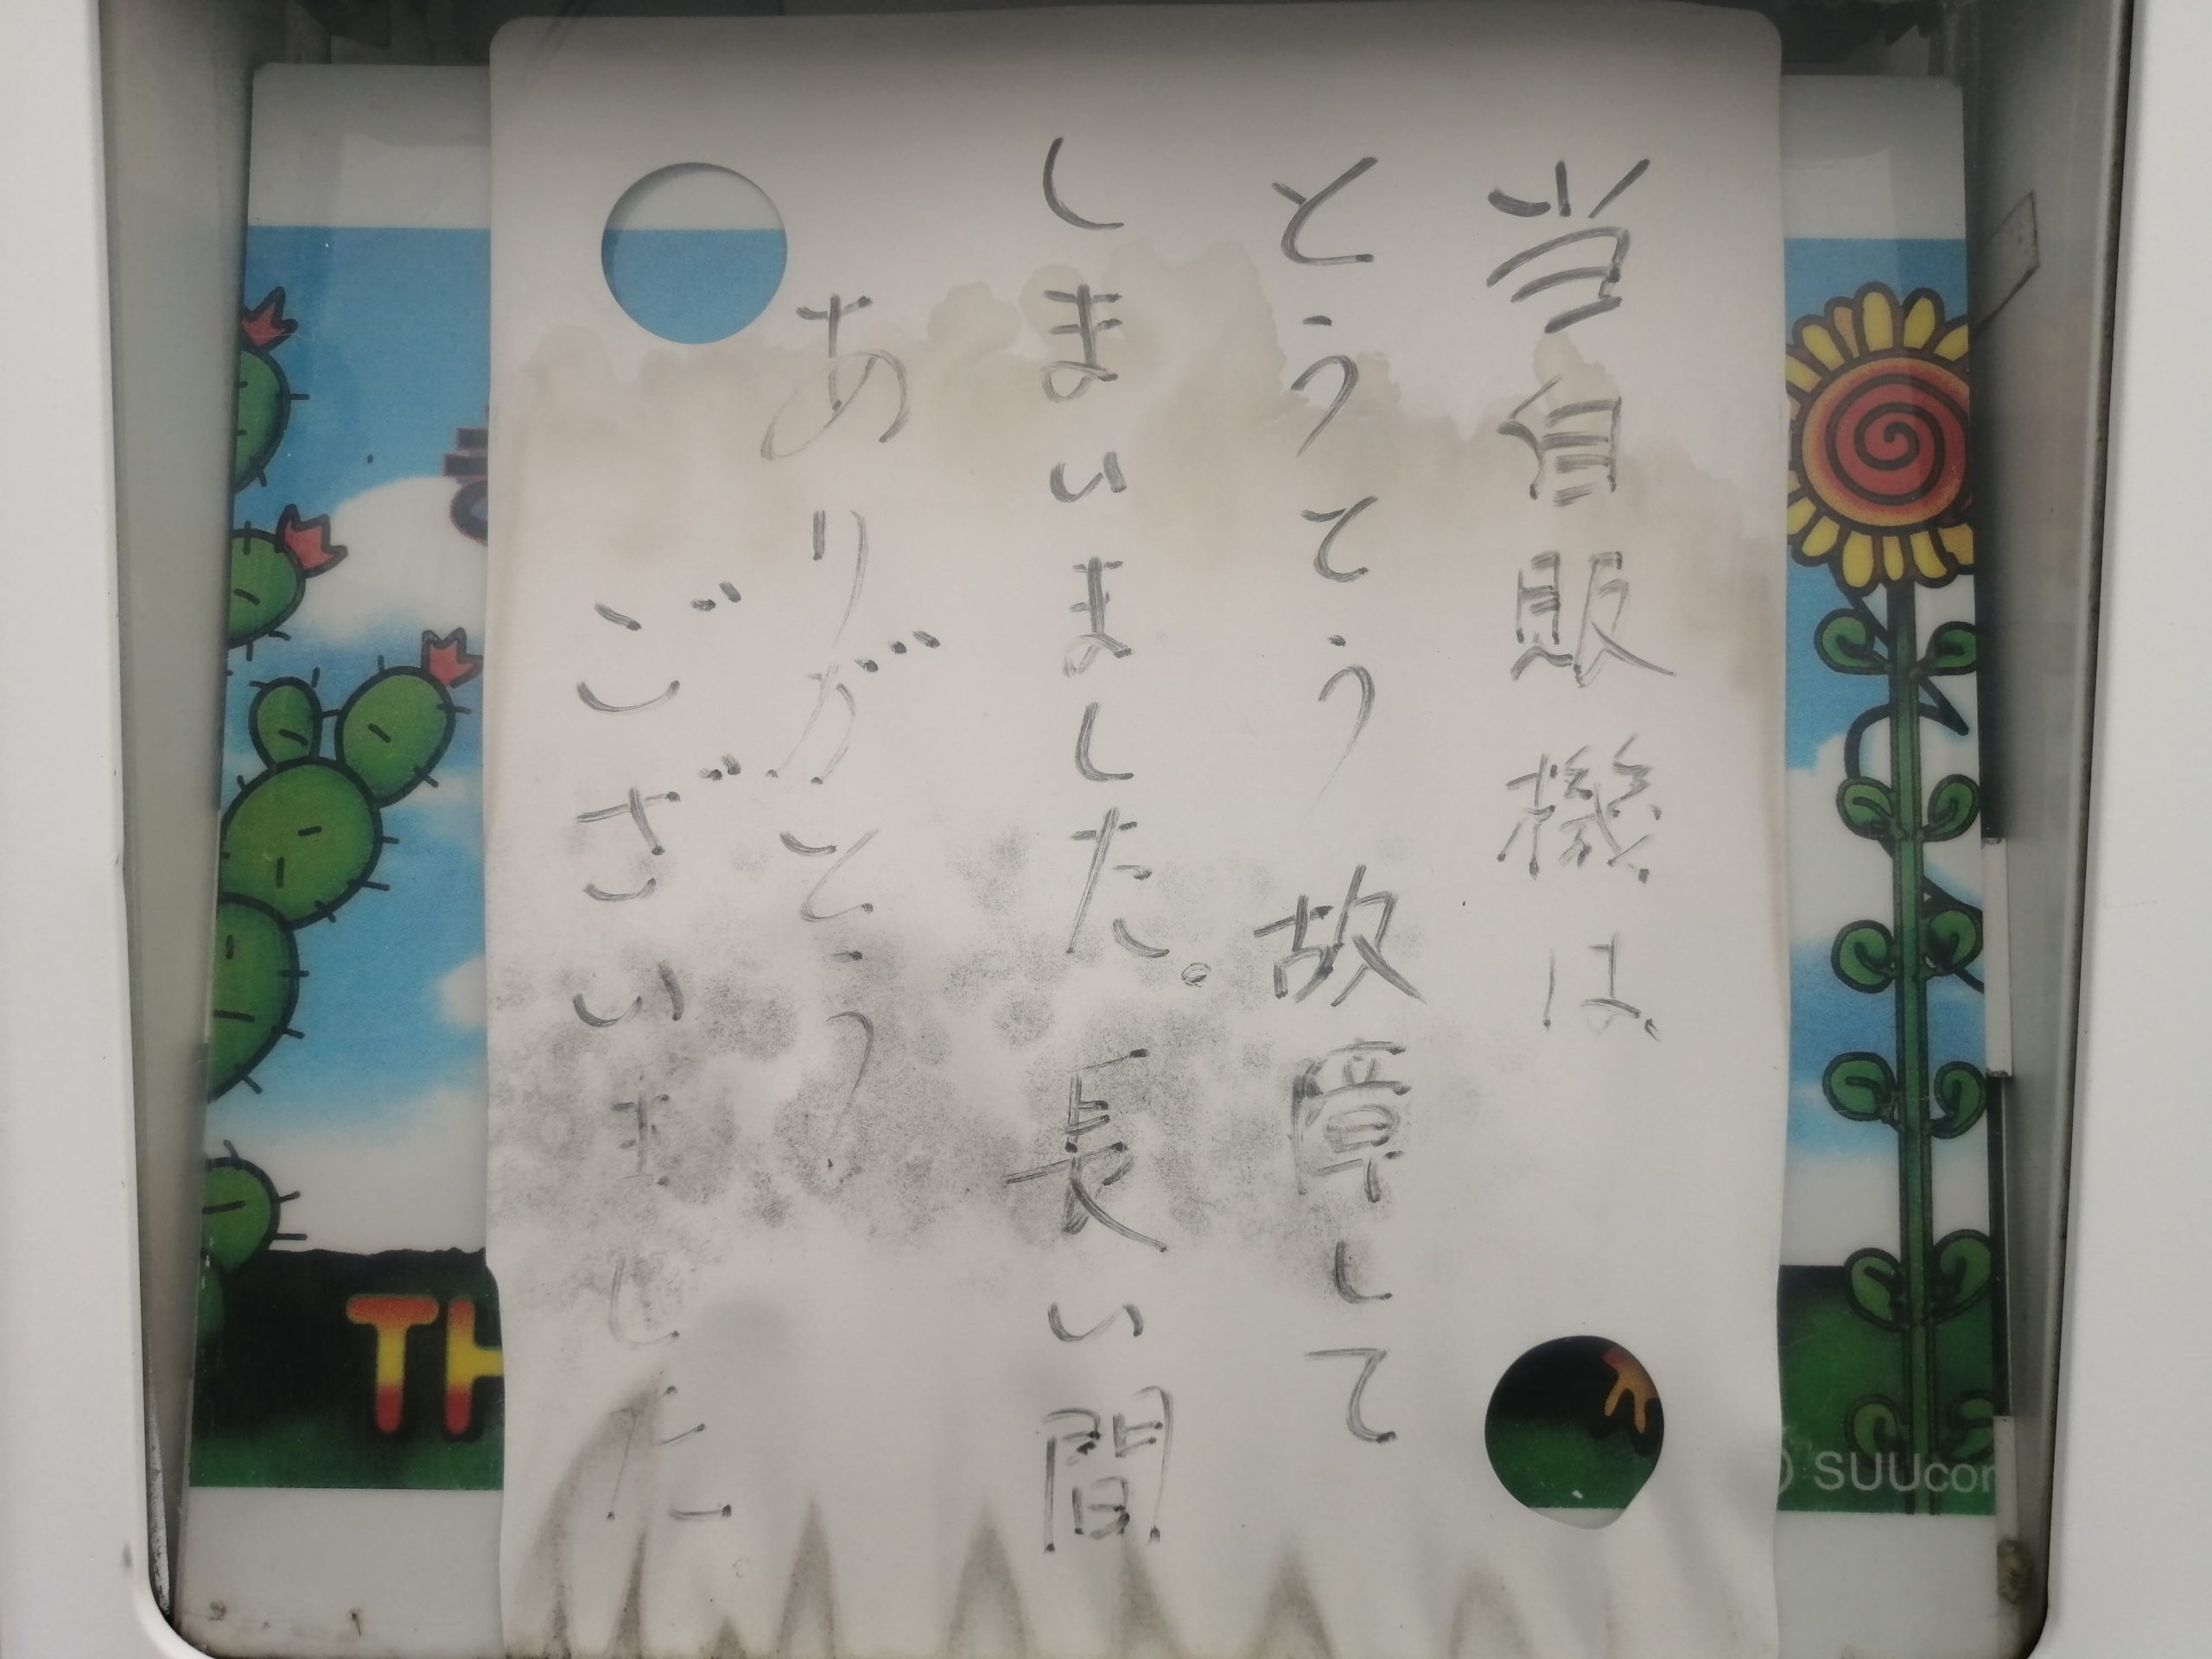 当自販機は、
とうとう故障して
しまいました。長い間
ありがとう
ございました。
TH
SUUcor